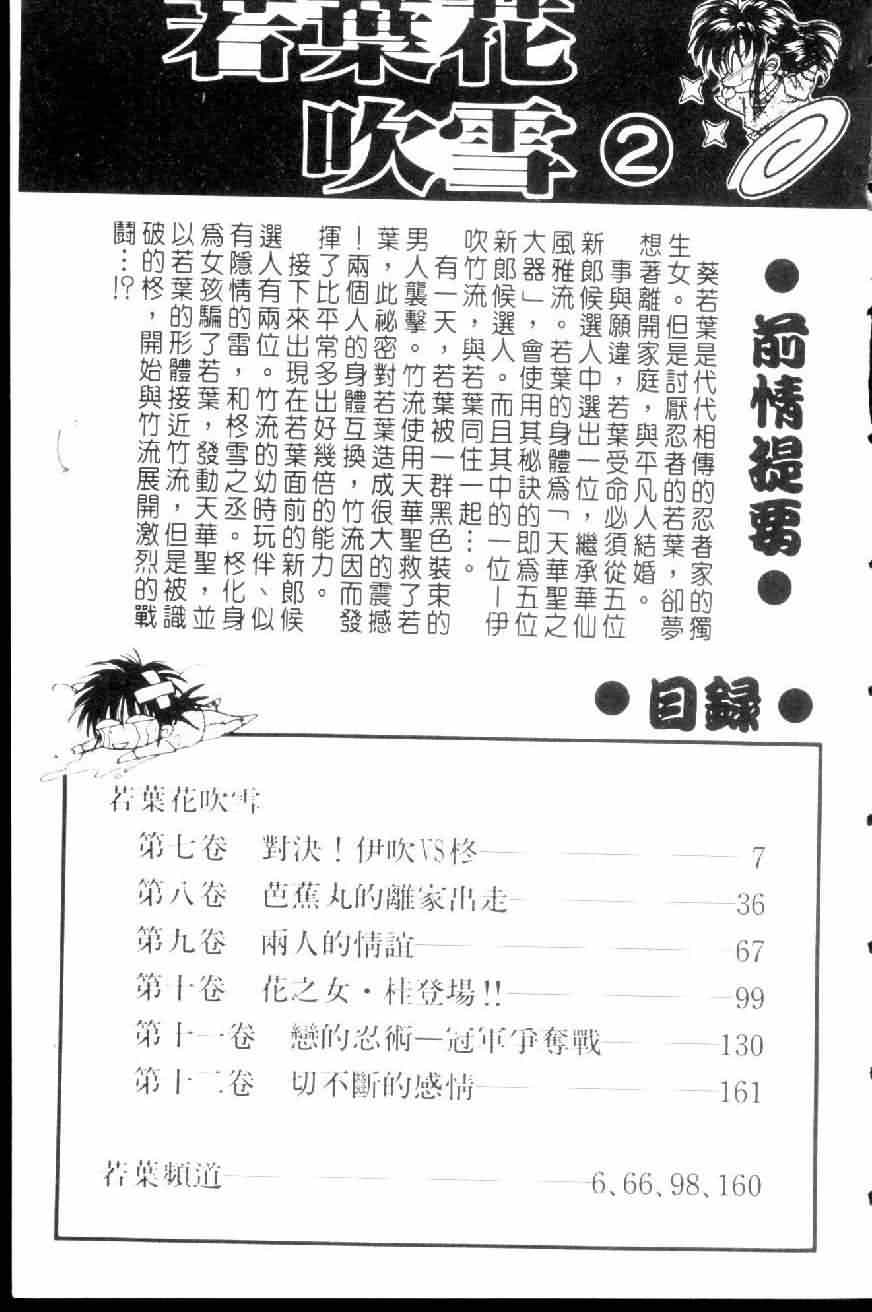 若葉花
吹雪②
●前情提要●
葵若葉是代代相傳的忍者家的獨
生女。但是討厭忍者的若葉，卻夢
想著離開家庭，與平凡人結婚。
事與願違，若葉受命必須從五位
新郎候選人中選出一位，繼承華仙
風雅流。若葉的身體為「天華聖之
大器」，會使用其秘訣的即為五位
新郎候選人。而且其中的一位—伊
吹竹流，與若葉同住一起…。
有一天，若葉被一群黑色裝束的
男人襲擊。竹流使用天華聖救了若
葉，此祕密對若葉造成很大的震撼
！兩個人的身體互換，竹流因而發
揮了比平常多出好幾倍的能力。
接下來出現在若葉面前的新郎候
選人有兩位。竹流的幼時玩伴、似
有隱情的雷，和柊雪之丞。柊化身
為女孩騙了若葉，發動天華聖，並
以若葉的形體接近竹流，但是被識
破的柊，開始與竹流展開激烈的戰
鬪…!?
●目録●
若葉花吹雪
第七卷　對決！伊吹VS柊 7
第八卷　芭蕉丸的離家出走 36
第九卷　兩人的情誼 67
第十卷　花之女・桂登場!! 99
第十一卷　戀的忍術—冠軍爭奪戰 130
第十二卷　切不斷的感情 161
若葉頻道 6、66、98、160